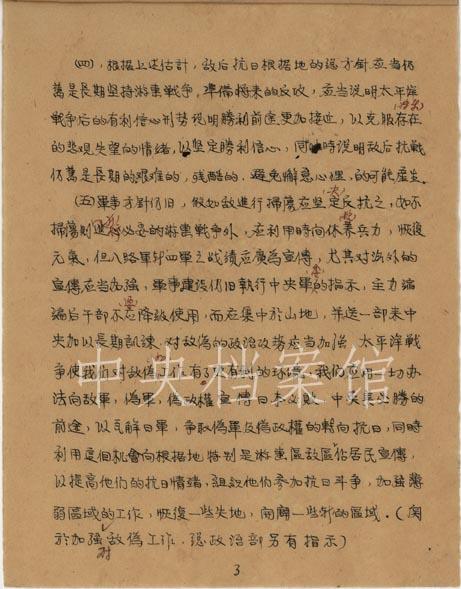 (四)、根据上述估计，敌后抗日根据地的总方針应当仍
旧是長期坚持游击战争，準備将来的反攻，应当说明太平洋
战争后的有利形势说明勝利前途更加接近，以克服存在
的悲观失望的情绪，以坚定勝利信心，同时说明敌后抗戰
仍旧是長期的艰难的，残酷的，避免懈怠心理的可能產生。
(五)軍事方針仍旧，假如敌進行掃蕩应坚定反抗之，如不
掃蕩则進行必要的游击戰争外，应利用時间休养兵力，恢復
元氣，但八路軍新四軍之战績应廣為宣傳，尤其对海外的
宣傳应当加强，軍事建设仍旧執行中央軍委的指示，主力编
遍后干部不应降级使用，而应集中於山地，并送一部来中
央加以長期訓練，对敌偽的政治攻势应当加强，太平洋戰
争使我们对敌偽工作有了更有利的环境，我们应用一切办
法向敌軍，偽軍，偽政權宣傳日本必败，中央美必勝的
前途，以瓦解日軍，争取偽軍及偽政權的轉向抗日，同時
利用這個机會向根据地特别是游击區敌區佔居民宣傳，
以提高他们的抗日情绪，組织他们参加抗日斗争，加强薄
弱區域的工作，恢復一些失地，開闢一些新的區域。（関
於加强对敌偽工作，總政治部另有指示）
3
中央档案馆